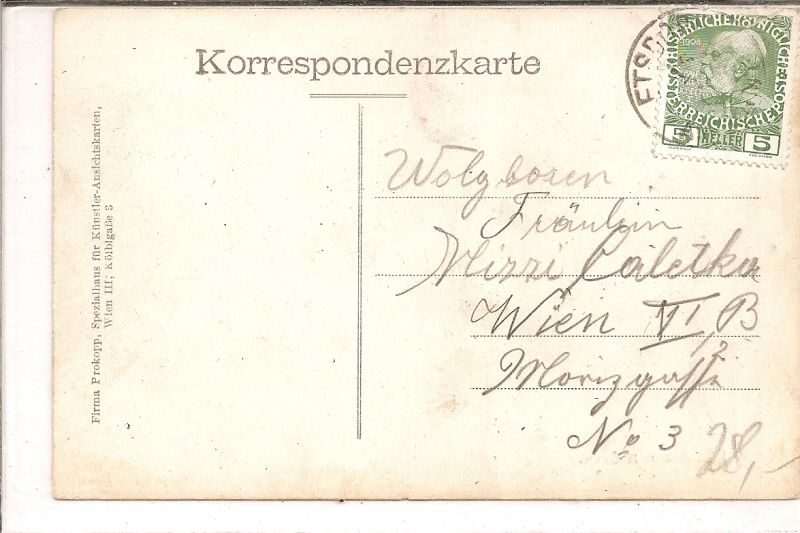 Korrespondenzkarte
ETSDO
KAISERLICHE KÖNIGLICHE
ÖSTERREICHISCHE POST
1908
5 HELLER 5
Wolgboren
Fräulein
Mizzi Caletka
Wien VI, B
Morizgasse
No 3
28,-
Firma Prokopp, Spezialhaus für Künstler-Ansichtskarten,
Wien III; Kölblgaße 3